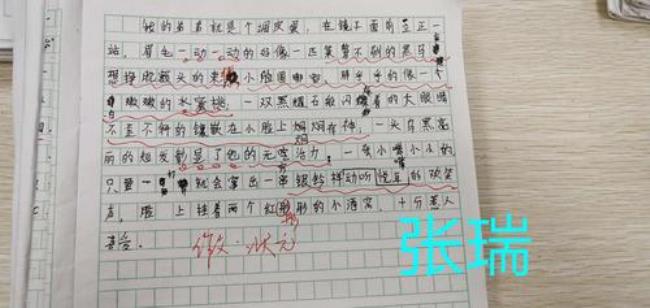 我的弟弟就是个调皮蛋，在镜子面前立正一
站，眉毛一动一动的好像一匹桀骜不驯的黑马
想挣脱额头的束缚，小脸圆嘟嘟，胖乎乎的像一个
嫩嫩的水蜜桃，一双黑耀石般闪着的大眼睛
不歪不斜的镶嵌在小脸上炯炯有神，一头乌黑亮
丽的短发彰显了他的无穷活力，一张小嘴小小的
只要一 就会拿出一串银铃样动听悦耳的欢笑
声，脸上挂着两个红彤彤的小酒窝，十分惹人
喜爱。
作文·状元
张瑞